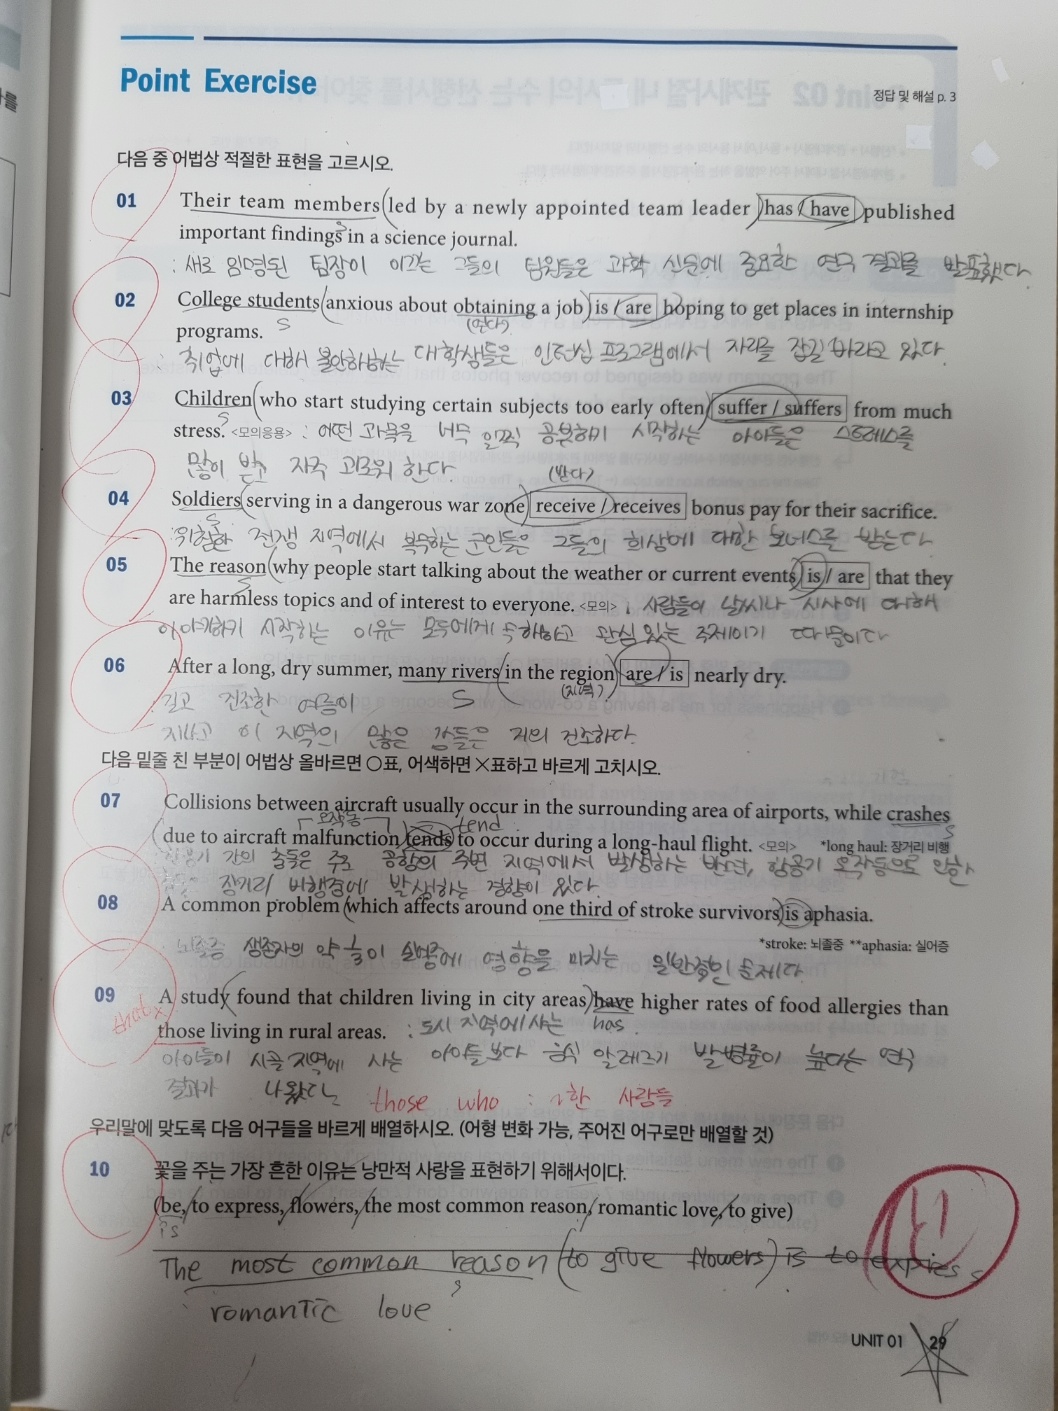 Point Exercise
정답 및 해설 p. 3
다음 중 어법상 적절한 표현을 고르시오.
01 Their team members (led by a newly appointed team leader) has / have published
important findings in a science journal.
S
: 새로 임명된 팀장이 이끄는 그들의 팀원들은 과학 신문에 중요한 연구 결과를 발표했다.
02 College students (anxious about obtaining a job) is / are hoping to get places in internship
S (얻다)
programs.
: 취업에 대해 불안해하는 대학생들은 인턴십 프로그램에서 자리를 잡길 바라고 있다.
03 Children (who start studying certain subjects too early often) suffer / suffers from much
S
stress. <모의응용> : 어떤 과목을 너무 일찍 공부하기 시작하는 아이들은 스트레스를
많이 받고 자주 괴로워 한다.
(받다)
04 Soldiers (serving in a dangerous war zone) receive / receives bonus pay for their sacrifice.
S
: 위험한 전쟁 지역에서 복무하는 군인들은 그들의 희생에 대한 보너스를 받는다.
05 The reason (why people start talking about the weather or current events) is / are that they
S
are harmless topics and of interest to everyone. <모의> : 사람들이 날씨나 시사에 대해
이야기하기 시작하는 이유는 모두에게 관심 있는 주제이기 때문이다
06 After a long, dry summer, many rivers (in the region) are / is nearly dry.
S (지역)
길고 건조한 여름이
지나고 이 지역의 많은 강들은 거의 건조하다.
다음 밑줄 친 부분이 어법상 올바르면 ○표, 어색하면 ×표하고 바르게 고치시오.
07 Collisions between aircraft usually occur in the surrounding area of airports, while crashes
오작동 tend S
(due to aircraft malfunction) tends to occur during a long-haul flight. <모의> *long haul: 장거리 비행
항공기 간의 충돌은 주로 공항의 주변 지역에서 발생하는 반면, 항공기 오작동으로 인한
장거리 비행중에 발생하는 경향이 있다.
08 A common problem (which affects around one third of stroke survivors) is aphasia.
*stroke: 뇌졸중 **aphasia: 실어증
뇌졸중 생존자의 약 ⅓이 실어증에 영향을 미치는 일반적인 문제다
09 A study (found that children living in city areas) have higher rates of food allergies than
those living in rural areas. : 도시 지역에 사는 has.
아이들이 시골 지역에 사는 아이들보다 음식 알레르기 발병률이 높다는 연구
결과가 나왔다 those who : ~한 사람들
우리말에 맞도록 다음 어구들을 바르게 배열하시오. (어형 변화 가능, 주어진 어구로만 배열할 것)
10 꽃을 주는 가장 흔한 이유는 낭만적 사랑을 표현하기 위해서이다.
(be, to express, flowers, the most common reason, romantic love, to give)
is
The most common reason (to give flowers) is to express
S
romantic love.
UNIT 01 29